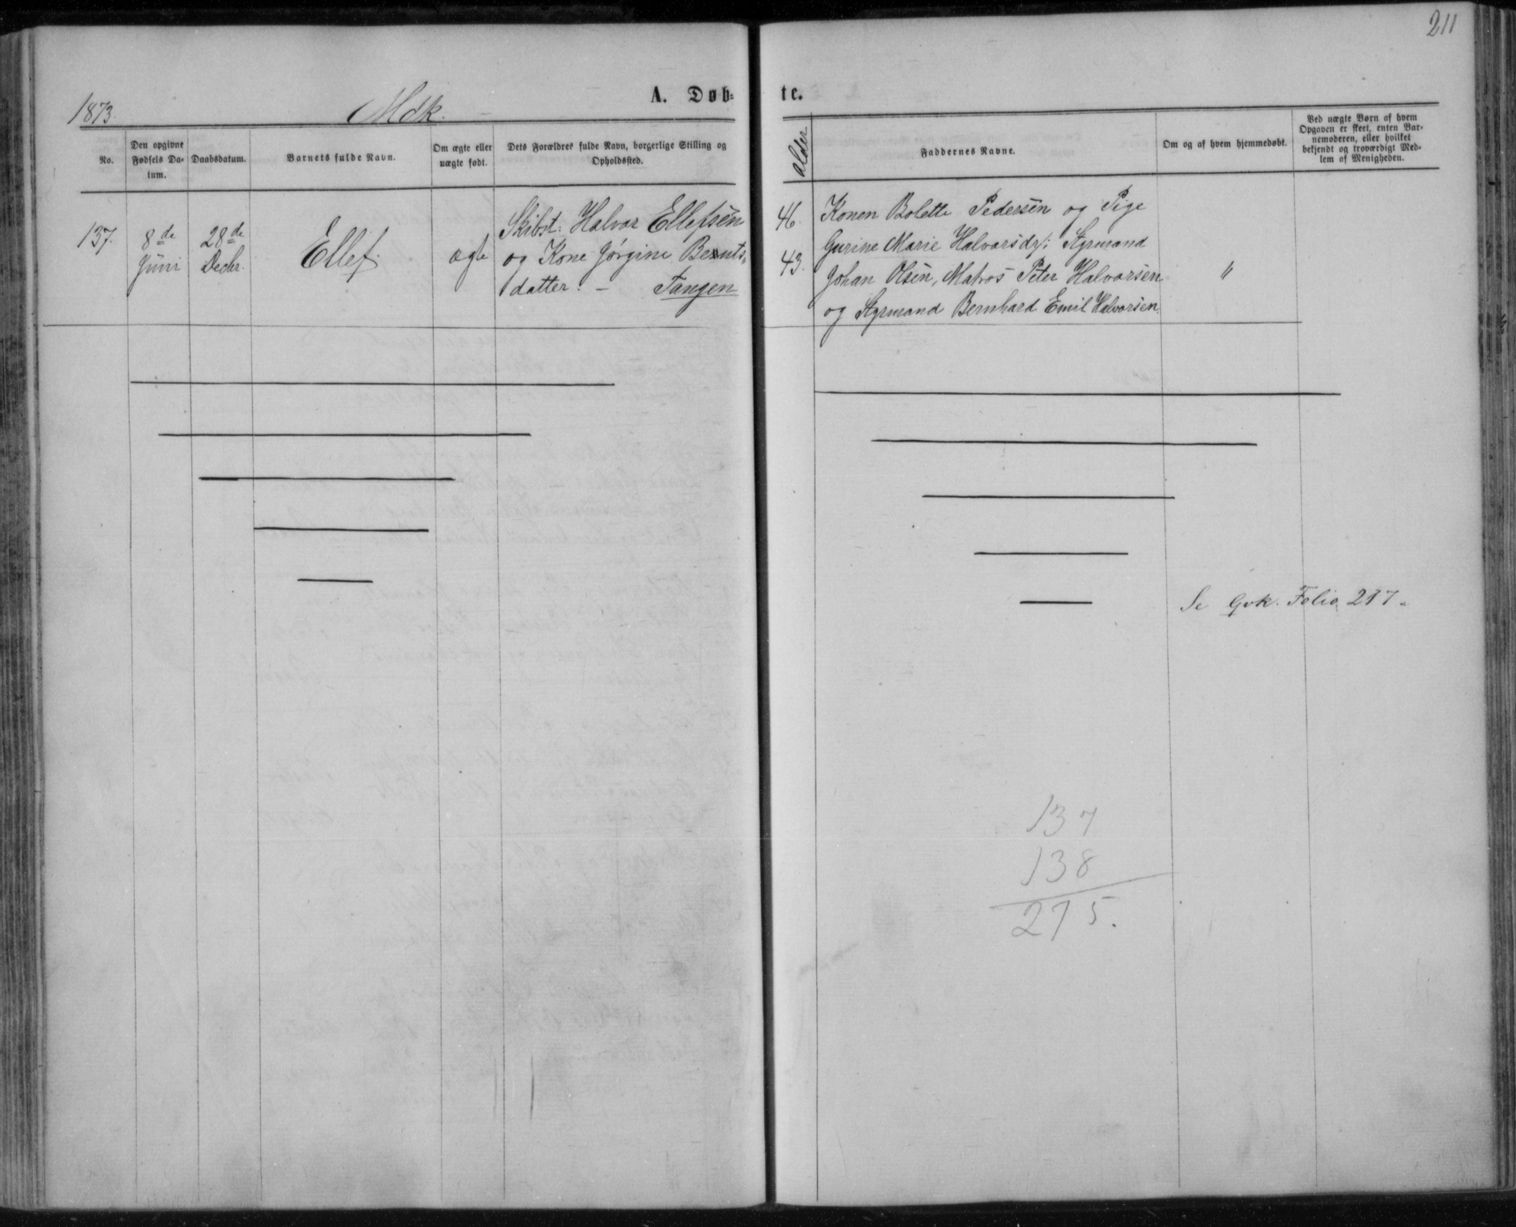 211
1873.
Mdk.
A. Døb-
te.
No.
Den opgivne Fødsels Da-
tum.
Daabsdatum.
Barnets fulde Navn.
Om ægte eller
uægte født.
Dets Forældres fulde Navn, borgerlige Stilling og
Opholdssted.
Alder
Faddernes Navne.
Om og af hvem hjemmedøbt.
Ved uægte Børn af hvem
Opgaven er skeet, enten Bar-
nemoderen, eller hvilket
bekjendt og troværdigt Med-
lem af Menigheden.
137.
8de
Juni
28de
Decbr.
Ellef.
ægte
Skibst. Halvor Ellefsen
og Kone Jørgine Bernts-
datter. - Tangen
46.
43.
Konen Bolette Pedersen og Pige
Gurine Marie Halvorsdr; Styrmand
Johan Olsen, Matros Peter Halvorsen
og Styrmand Bernhard Emil Halvorsen
"
Se Qvk. Folio 217.
137
138
275.